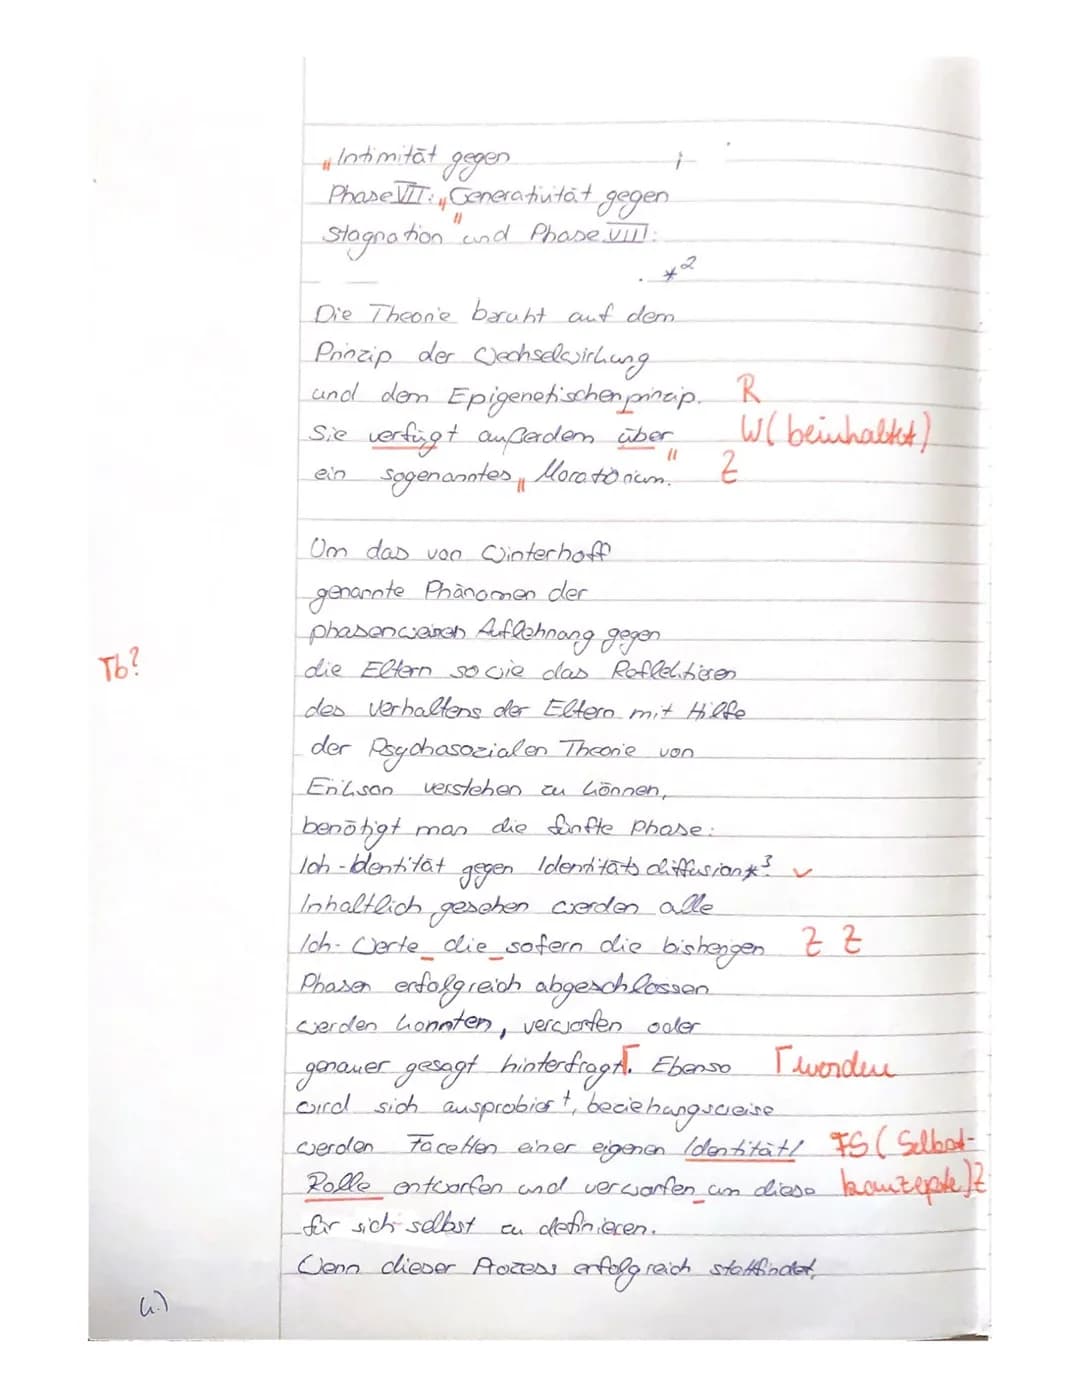 "Intimität gegen
Phase VII: "Generativität gegen
Stagnation" und Phase VIII:
*2
Die Theorie beruht auf dem
Prinzip der Wechselwirkung
und dem Epigenetischenprinzip. R
Sie verfügt außerdem über W (beinhaltet)
ein sogenanntes "Moratorium." Z
Um das von Winterhoff
genannte Phänomen der
phasenweisen Auflehnung gegen
Tb? die Eltern sowie das Reflektieren
des Verhaltens der Eltern mit Hilfe
der Psychosozialen Theorie von
Erikson verstehen zu können,
benötigt man die fünfte Phase:
Ich-Identität gegen Identitätsdiffusion *3 ✓
Inhaltlich gesehen werden alle
Ich-Werte_die_sofern die bisherigen Z Z
Phasen erfolgreich abgeschlossen
werden konnten, verworfen oder
genauer gesagt hinterfragt Γ. Ebenso Γ worden
wird sich ausprobiert, beziehungsweise
werden Facetten einer eigenen Identität/ FS (Selbst-
Rolle entworfen und verworfen_um diese konzepte) Z
für sich selbst zu definieren.
Wenn dieser Prozess erfolgreich stattfindet,
4.)